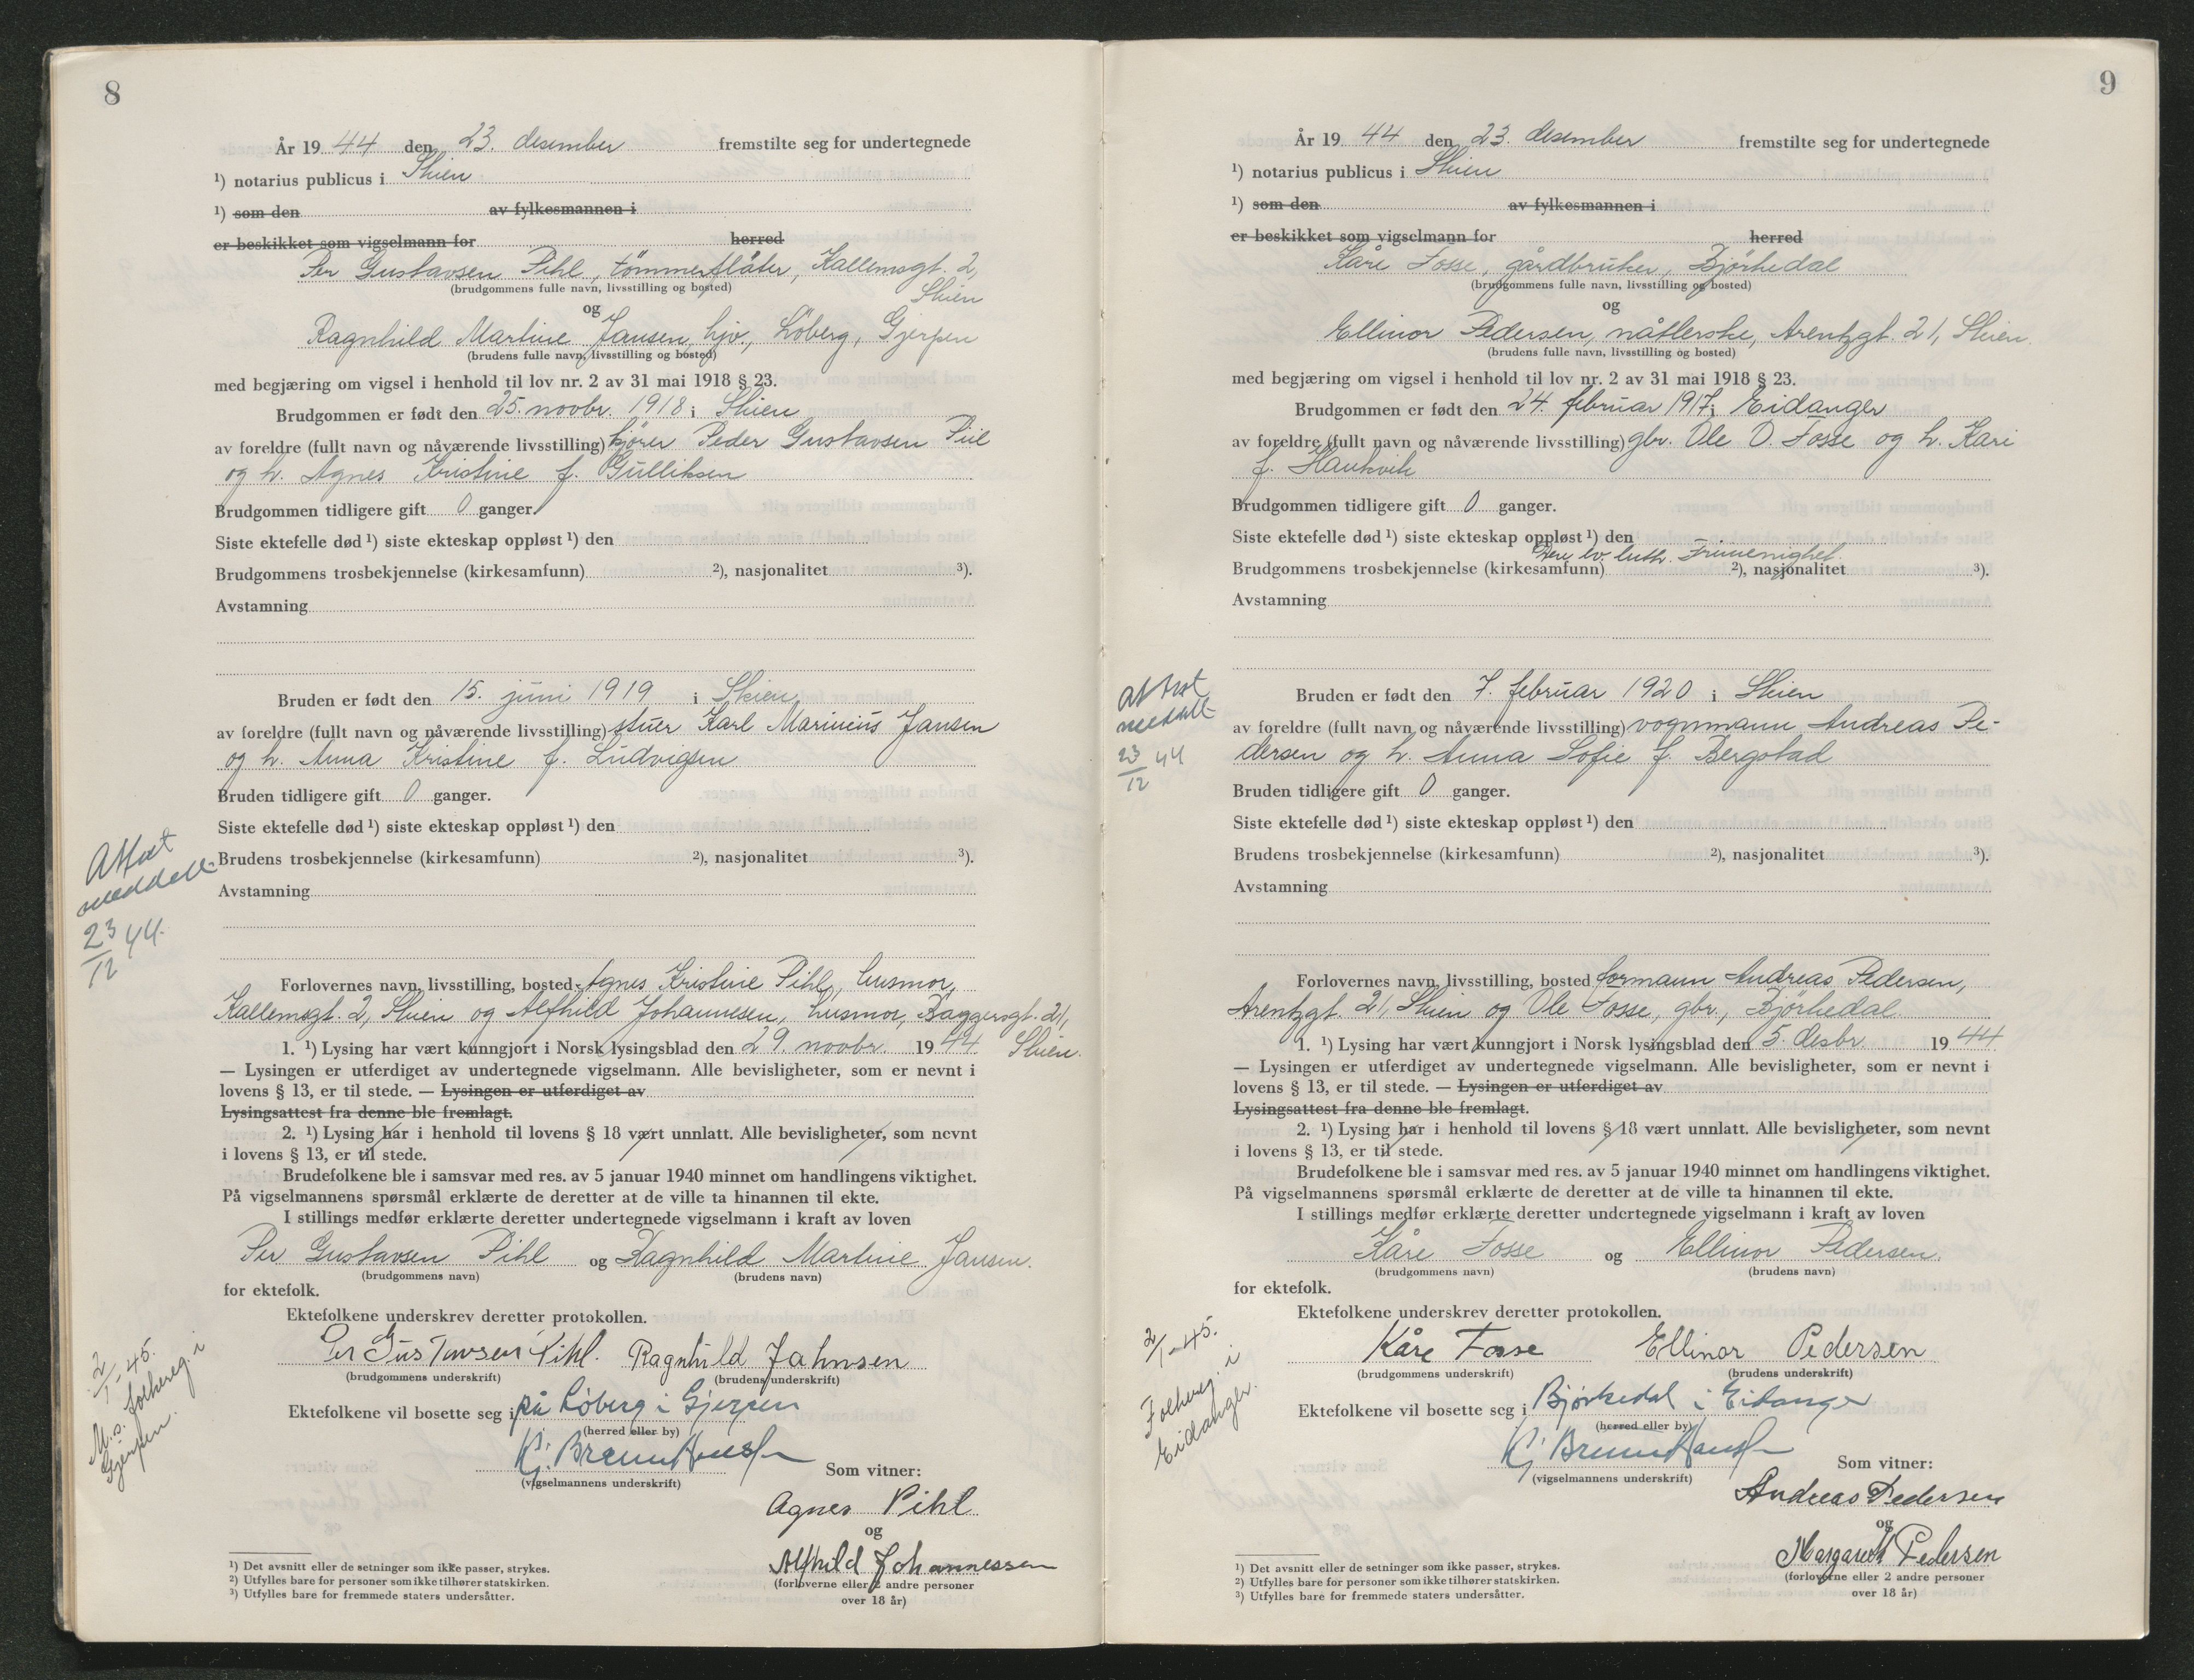 8
År 19 44 den 23. desember fremstilte seg for undertegnede
¹) notarius publicus i Skien
¹) som den av fylkesmannen i
er beskikket som vigselmann for herred
Per Gustavsen Pihl, tømmerfløter, Kallemsgt. 2,
(brudgommens fulle navn, livsstilling og bosted)
Skien
og
Ragnhild Martine Jansen, hjv., Løberg, Gjerpen
(brudens fulle navn, livsstilling og bosted)
med begjæring om vigsel i henhold til lov nr. 2 av 31 mai 1918 § 23.
Brudgommen er født den 25. novbr. 1918 i Skien
av foreldre (fullt navn og nåværende livsstilling) kjører Peder Gustavsen Piil
og h. Agnes Kristine f. Gulliksen
Brudgommen tidligere gift 0 ganger.
Siste ektefelle død ¹) siste ekteskap oppløst ¹) den
Brudgommens trosbekjennelse (kirkesamfunn) ²), nasjonalitet ³).
Avstamning
Bruden er født den 15. juni 1919 i Skien
av foreldre (fullt navn og nåværende livsstilling) stuer Karl Marinius Jansen
og h. Anna Kristine f. Ludvigsen
Bruden tidligere gift 0 ganger.
Siste ektefelle død ¹) siste ekteskap oppløst ¹) den
Attest
meddelt
23/12 44.
Brudens trosbekjennelse (kirkesamfunn) ²), nasjonalitet ³).
Avstamning
Forlovernes navn, livsstilling, bosted Agnes Kristine Pihl, husmor,
Kallemsgt. 2, Skien og Alfhild Johannesen, husmor, Baggersgt. 21,
Skien.
1. ¹) Lysing har vært kunngjort i Norsk lysingsblad den 29. novbr. 19 44.
— Lysingen er utferdiget av undertegnede vigselmann. Alle bevisligheter, som er nevnt i
lovens § 13, er til stede. — Lysingen er utferdiget av
Lysingsattest fra denne ble fremlagt.
2. ¹) Lysing har i henhold til lovens § 18 vært unnlatt. Alle bevisligheter, som nevnt
i lovens § 13, er til stede.
Brudefolkene ble i samsvar med res. av 5 januar 1940 minnet om handlingens viktighet.
På vigselmannens spørsmål erklærte de deretter at de ville ta hinannen til ekte.
I stillings medfør erklærte deretter undertegnede vigselmann i kraft av loven
Per Gustavsen Pihl og Ragnhild Martine Jansen.
(brudgommens navn) (brudens navn)
for ektefolk.
Ektefolkene underskrev deretter protokollen.
Per Gustavsen Pihl. Ragnhild Jahnsen
(brudgommens underskrift) (brudens underskrift)
2/1-45.
M.s. folkereg. i
Gjerpen.
Ektefolkene vil bosette seg i på Løberg i Gjerpen
(herred eller by)
(vigselmannens underskrift)
Som vitner:
Agnes Pihl
og
Alfhild Johannessen
(forloverne eller 2 andre personer
over 18 år)
¹) Det avsnitt eller de setninger som ikke passer, strykes.
²) Utfylles bare for personer som ikke tilhører statskirken.
³) Utfylles bare for fremmede staters undersåtter.
9
År 19 44 den 23. desember fremstilte seg for undertegnede
¹) notarius publicus i Skien
¹) som den av fylkesmannen i
er beskikket som vigselmann for herred
Kåre Fosse, gårdbruker, Bjørkedal
(brudgommens fulle navn, livsstilling og bosted)
og
Ellinor Pedersen, nåtlerske, Arentzgt. 21, Skien.
(brudens fulle navn, livsstilling og bosted)
med begjæring om vigsel i henhold til lov nr. 2 av 31 mai 1918 § 23.
Brudgommen er født den 24. februar 1917 i Eidanger
av foreldre (fullt navn og nåværende livsstilling) gbr. Ole O. Fosse og h. Kari
f. Haukvik
Brudgommen tidligere gift 0 ganger.
Siste ektefelle død ¹) siste ekteskap oppløst ¹) den
ev. luth. Frimenighet.
Brudgommens trosbekjennelse (kirkesamfunn) ²), nasjonalitet ³).
Avstamning
Attest
meddelt
23/12 44
Bruden er født den 7. februar 1920 i Skien
av foreldre (fullt navn og nåværende livsstilling) vognmann Andreas Pe-
dersen og h. Anna Sofie f. Bergstad
Bruden tidligere gift 0 ganger.
Siste ektefelle død ¹) siste ekteskap oppløst ¹) den
Brudens trosbekjennelse (kirkesamfunn) ²), nasjonalitet ³).
Avstamning
Forlovernes navn, livsstilling, bosted formann Andreas Pedersen,
Arentzgt. 21, Skien og Ole Fosse, gbr., Bjørkedal.
1. ¹) Lysing har vært kunngjort i Norsk lysingsblad den 5. desbr. 19 44.
— Lysingen er utferdiget av undertegnede vigselmann. Alle bevisligheter, som er nevnt i
lovens § 13, er til stede. — Lysingen er utferdiget av
Lysingsattest fra denne ble fremlagt.
2. ¹) Lysing har i henhold til lovens § 18 vært unnlatt. Alle bevisligheter, som nevnt
i lovens § 13, er til stede.
Brudefolkene ble i samsvar med res. av 5 januar 1940 minnet om handlingens viktighet.
På vigselmannens spørsmål erklærte de deretter at de ville ta hinannen til ekte.
I stillings medfør erklærte deretter undertegnede vigselmann i kraft av loven
Kåre Fosse og Ellinor Pedersen.
(brudgommens navn) (brudens navn)
for ektefolk.
Ektefolkene underskrev deretter protokollen.
Kåre Fosse Ellinor Pedersen
(brudgommens underskrift) (brudens underskrift)
2/1-45.
Folkereg. i
Eidanger.
Ektefolkene vil bosette seg i Bjørkedal i Eidanger
(herred eller by)
(vigselmannens underskrift)
Som vitner:
Andreas Pedersen
og
Margareth Pedersen
(forloverne eller 2 andre personer
over 18 år)
¹) Det avsnitt eller de setninger som ikke passer, strykes.
²) Utfylles bare for personer som ikke tilhører statskirken.
³) Utfylles bare for fremmede staters undersåtter.